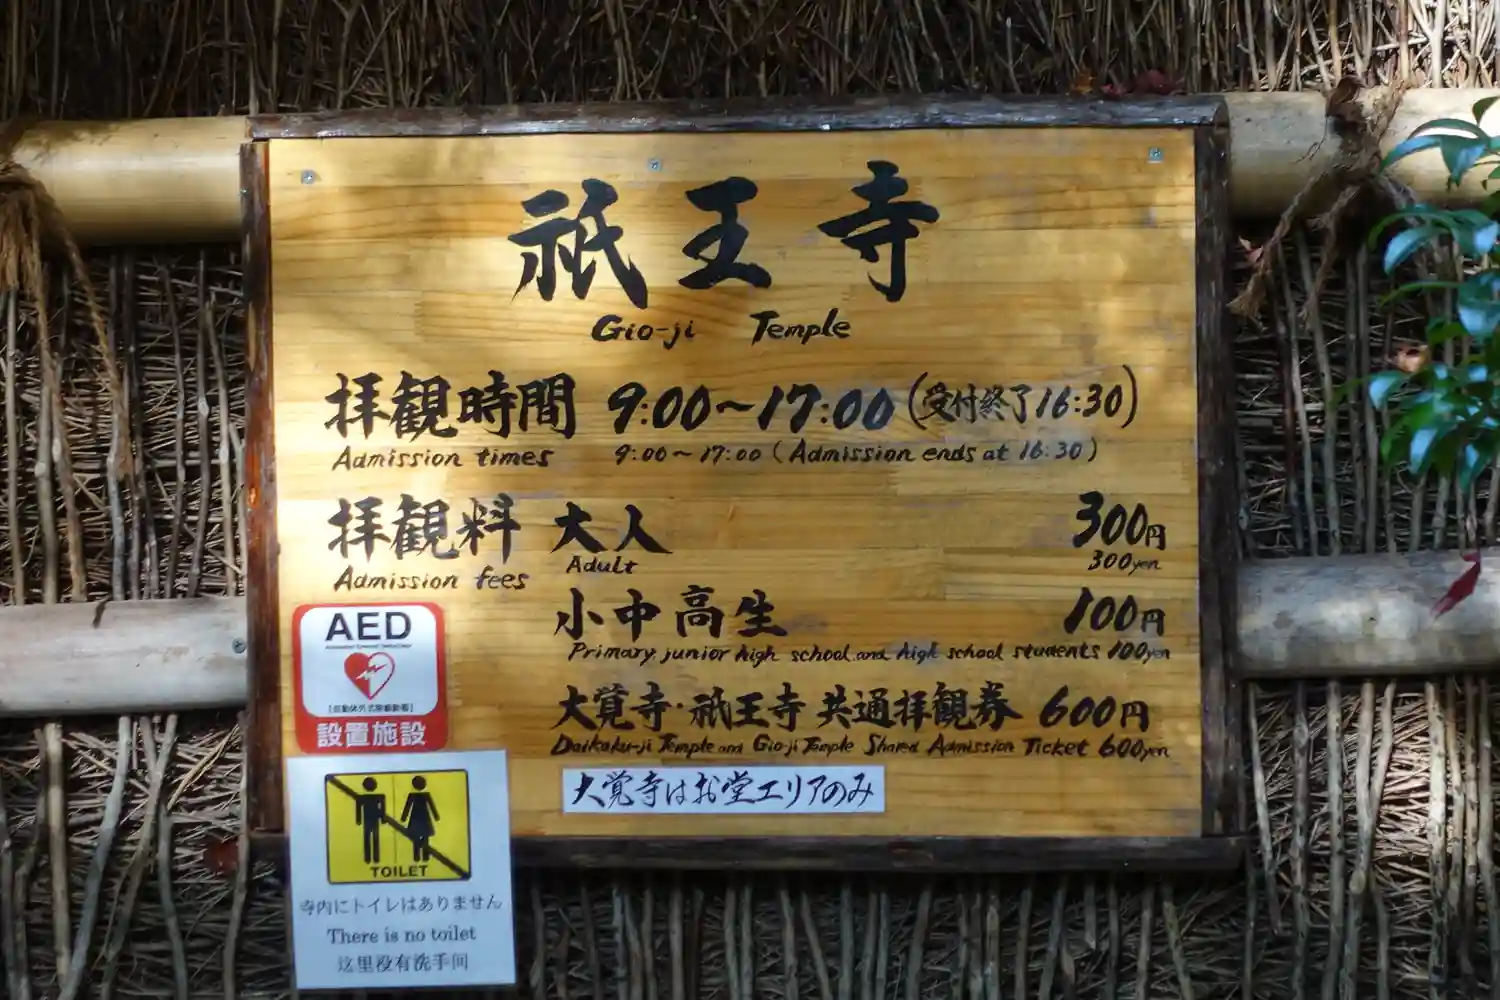 祇王寺
Gio-ji Temple
拝観時間 9:00〜17:00(受付終了16:30)
Admission times 9:00〜17:00(Admission ends at 16:30)
拝観料 大人 300円
Admission fees Adult 300yen
小中高生 100円
Primary, junior high school and high school students 100yen
大覚寺・祇王寺 共通拝観券 600円
Daikaku-ji Temple and Gio-ji Temple Shared Admission Ticket 600yen
大覚寺はお堂エリアのみ
AED
設置施設
TOILET
寺内にトイレはありません
There is no toilet
这里没有洗手间